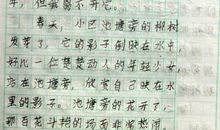 年，但我离不开它。
春天，小区池塘旁的柳树
发芽了，它的影子倒映在水中
好比一位楚楚动人的年轻少女，
站在池塘旁，欣赏自己映在水
里的影子。池塘旁的花开了，
那百花斗艳的场面非常热闹。